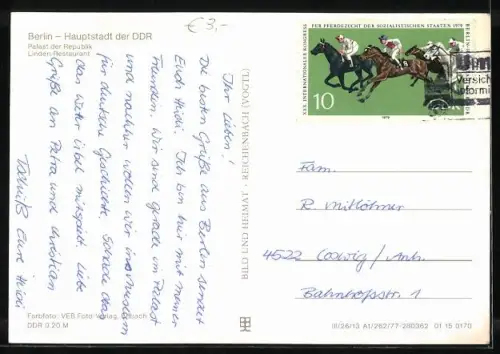 € 3,-
Berlin – Hauptstadt der DDR
Palast der Republik
Linden-Restaurant
Ihr Lieben!
Die besten Grüße aus Berlin sendet
Euch Heidi. Ich bin hier mit meiner
Freundin. Wir sind gerade im Palast
und nachher wollen wir ins Museum
für deutsche Geschichte. Schade das
das Wetter übel mitspielt. Liebe
Grüße an Petra und Christian
Eure Heidi
Farbfoto: VEB Foto-Verlag,
DDR 0,20 M
BILD UND HEIMAT · REICHENBACH (VOGTL)
XXI. INTERNATIONALER KONGRESS
FÜR PFERDEZUCHT DER SOZIALISTISCHEN STAATEN 1978
BERLIN
10
DDR
1978
Versich
informi
Fam.
R. Mittlöhner
4522 Coswig / Anh.
Bahnhofstr. 1
III/26/13 A1/262/77-280362 01 15 0170